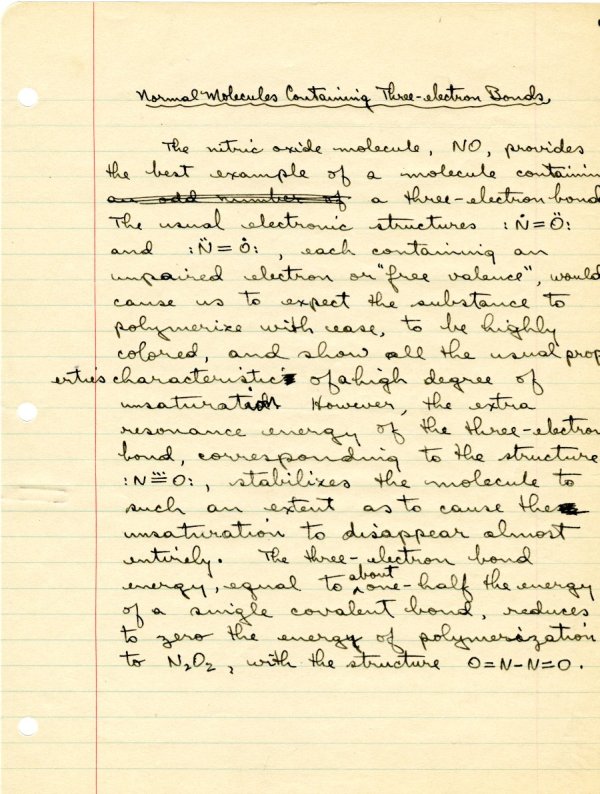 Normal Molecules Containing Three-electron Bonds.
The nitric oxide molecule, NO, provides
the best example of a molecule containin
an odd number of a three-electron bond
The usual electronic structures :Ṅ=Ö:
and :N̈=Ȯ: , each containing an
unpaired electron or "free valence", would
cause us to expect the substance to
polymerize with ease, to be highly
colored, and show all the usual prop
erties characteristic of a high degree of
unsaturation However, the extra
resonance energy of the three-electron
bond, corresponding to the structure
:N⩸O: , stabilizes the molecule to
such an extent as to cause the
unsaturation to disappear almost
entirely. The three-electron bond
energy, equal to about one-half the energy
of a single covalent bond, reduces
to zero the energy of polymerization
to N₂O₂, with the structure O=N-N=O.